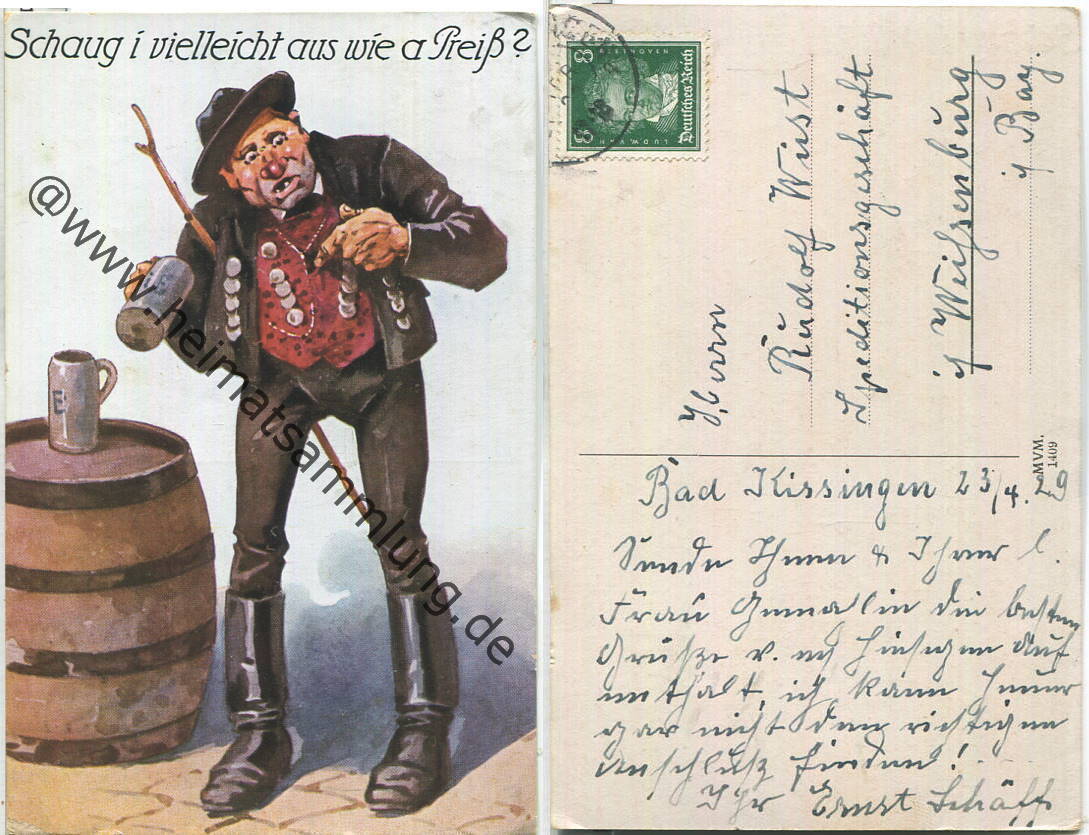 Schaug i vielleicht aus wie a Preiß?
@www.heimatsammlung.de
E
Deutsches Reich
8
8
LUDW. VAN
BEETHOVEN
Herrn
Rudolf Wüst
Speditionsgeschäft
i/ Weißenburg
i/ Bay.
M.V.M.
1409
Bad Kissingen 23/4.29
Sende Ihnen & Ihrer l.
Frau Gemahlin die besten
Grüße v. m/ hiesigen Auf
enthalt, ich kann heuer
gar nicht den richtigen
Anschluß finden!
Ihr Ernst Schäff